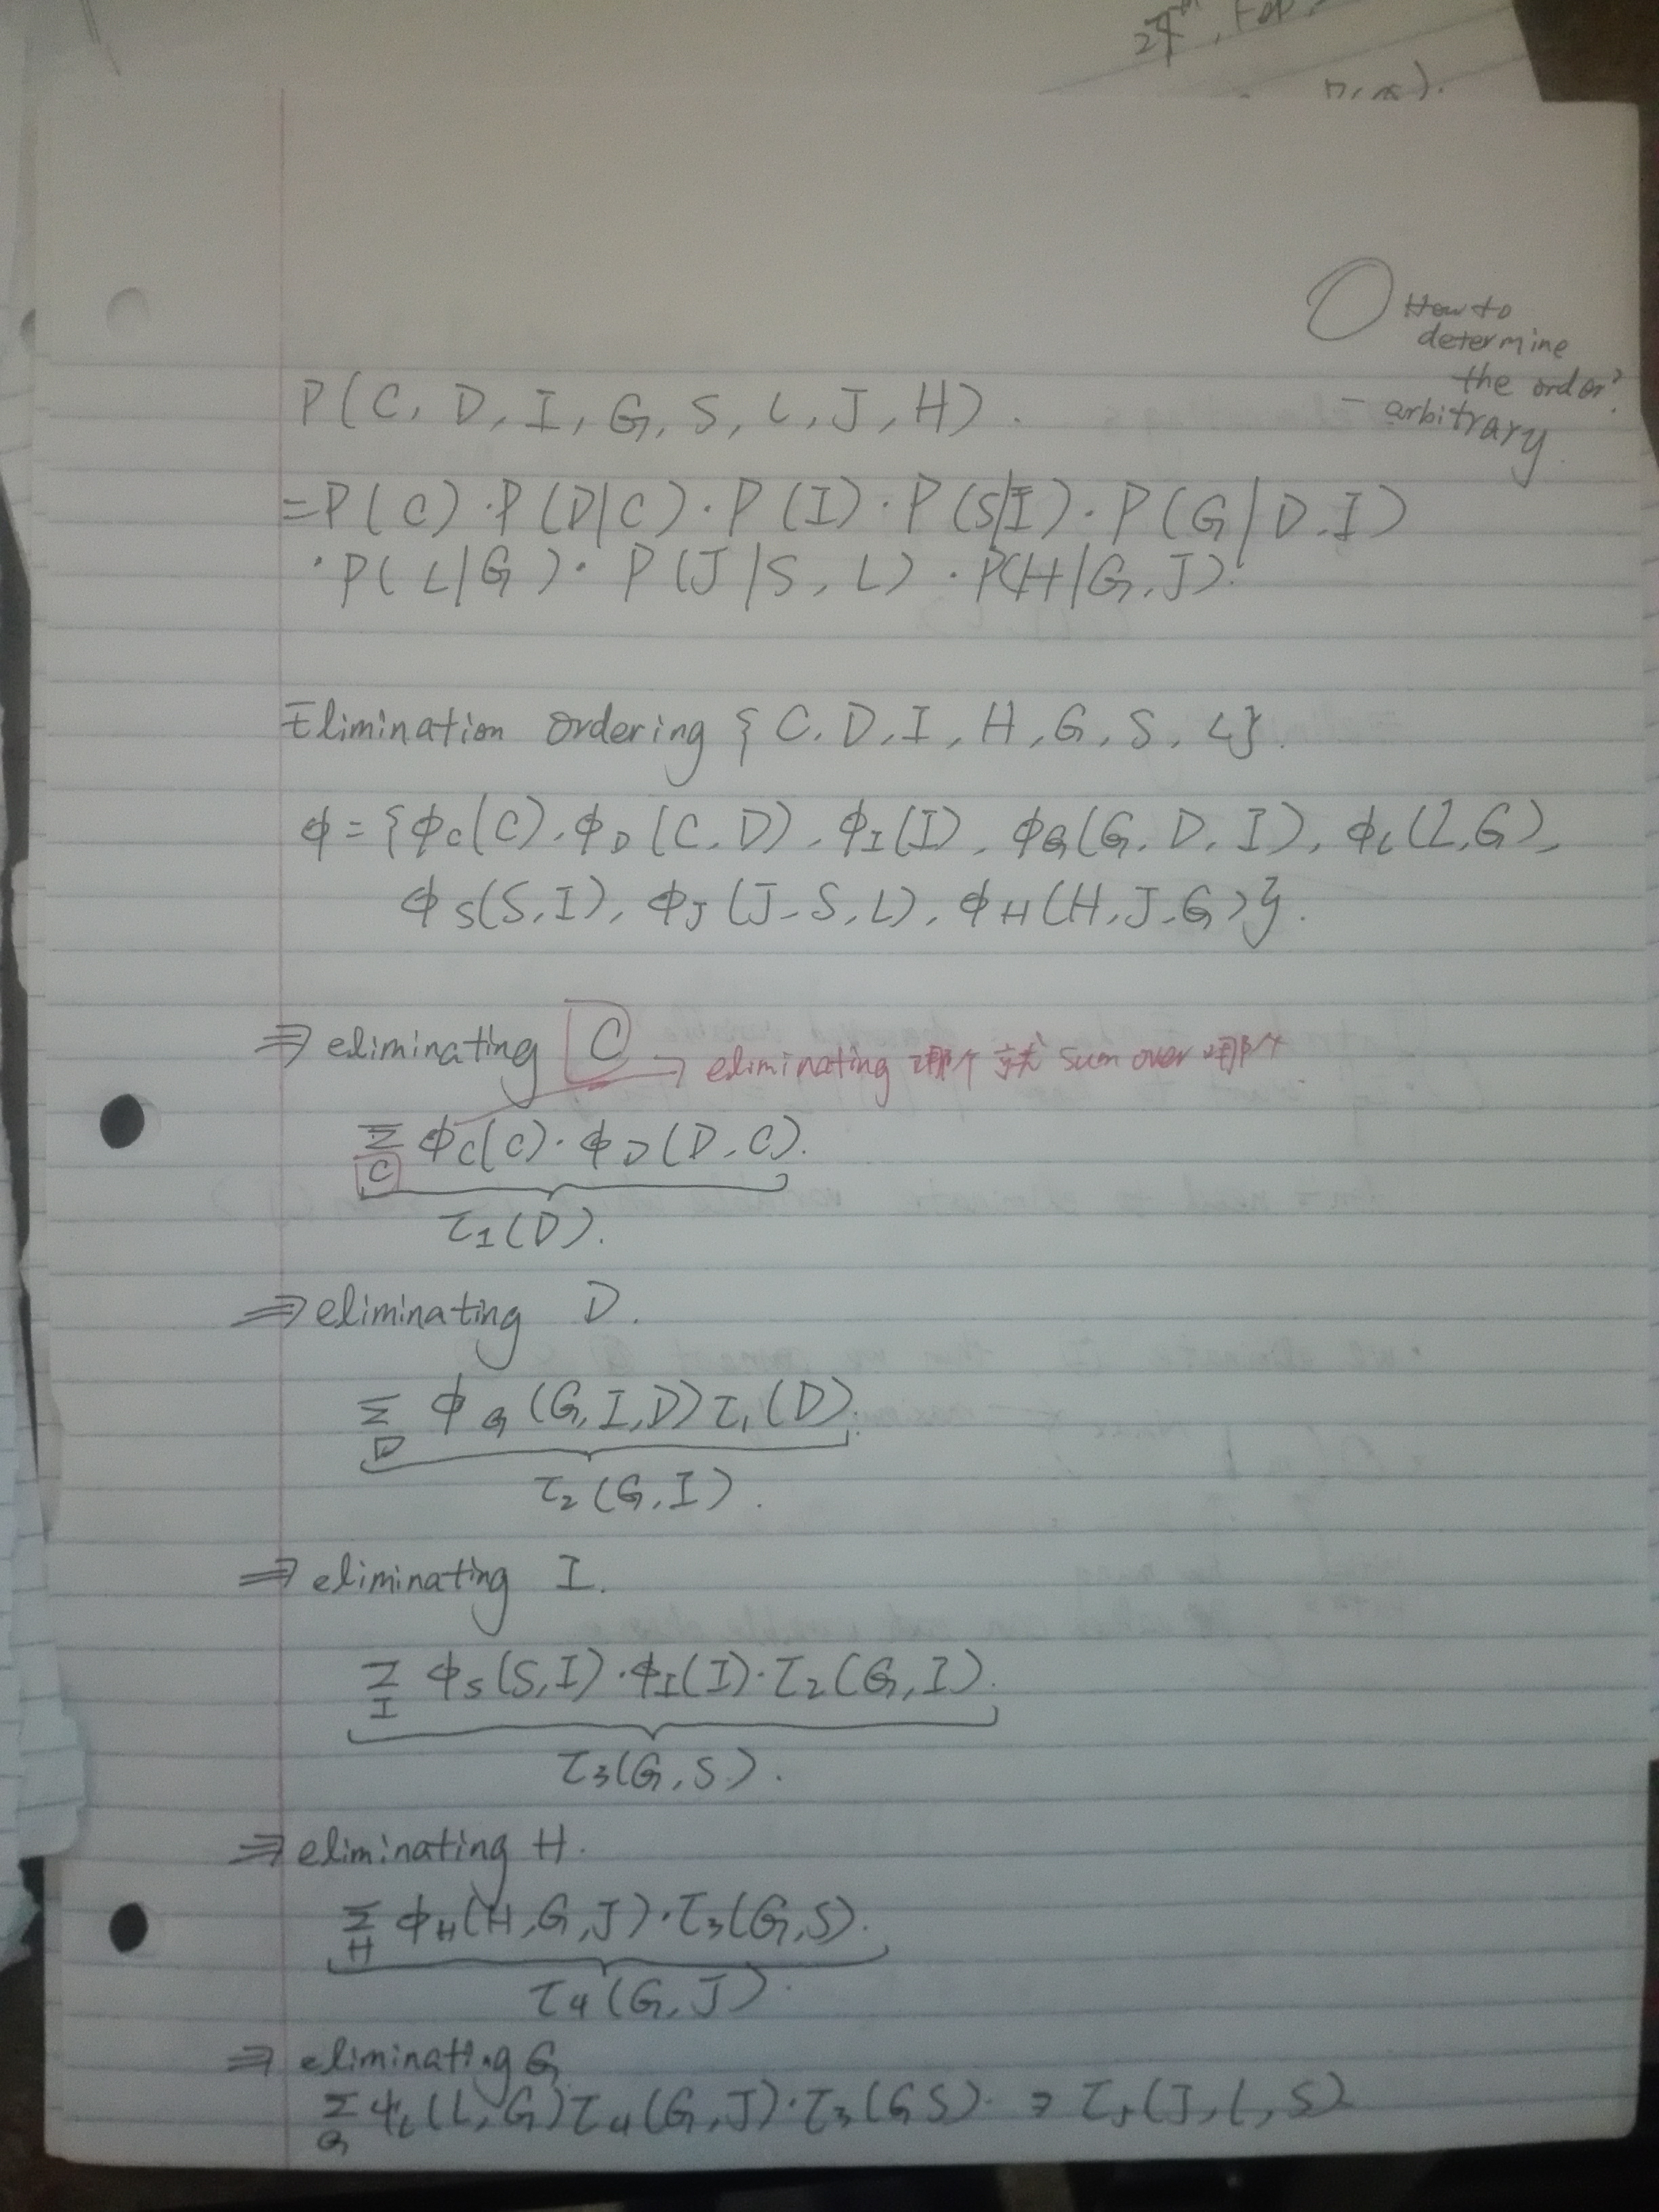 How to
determine
the order?
- arbitrary
P(C, D, I, G, S, L, J, H).
=P(C)·P(D|C)·P(I)·P(S|I)·P(G|D,I)
·P(L|G)·P(J|S,L)·P(H|G,J).
Elimination ordering {C, D, I, H, G, S, L}.
ϕ={ϕC(C), ϕD(C,D), ϕI(I), ϕG(G,D,I), ϕL(L,G),
ϕS(S,I), ϕJ(J,S,L), ϕH(H,J,G)}.
⇒ eliminating C → eliminating 哪个 就 sum over 哪个
Σ ϕC(C)·ϕD(D,C).
C
τ1(D).
⇒ eliminating D.
Σ ϕG(G,I,D)τ1(D).
D
τ2(G,I).
⇒ eliminating I.
Σ ϕS(S,I)·ϕI(I)·τ2(G,I).
I
τ3(G,S).
⇒ eliminating H.
Σ ϕH(H,G,J)·τ3(G,S).
H
τ4(G,J).
⇒ eliminating G
Σ ϕL(L,G)τ4(G,J)·τ3(GS). ⇒ τ5(J,L,S)
G